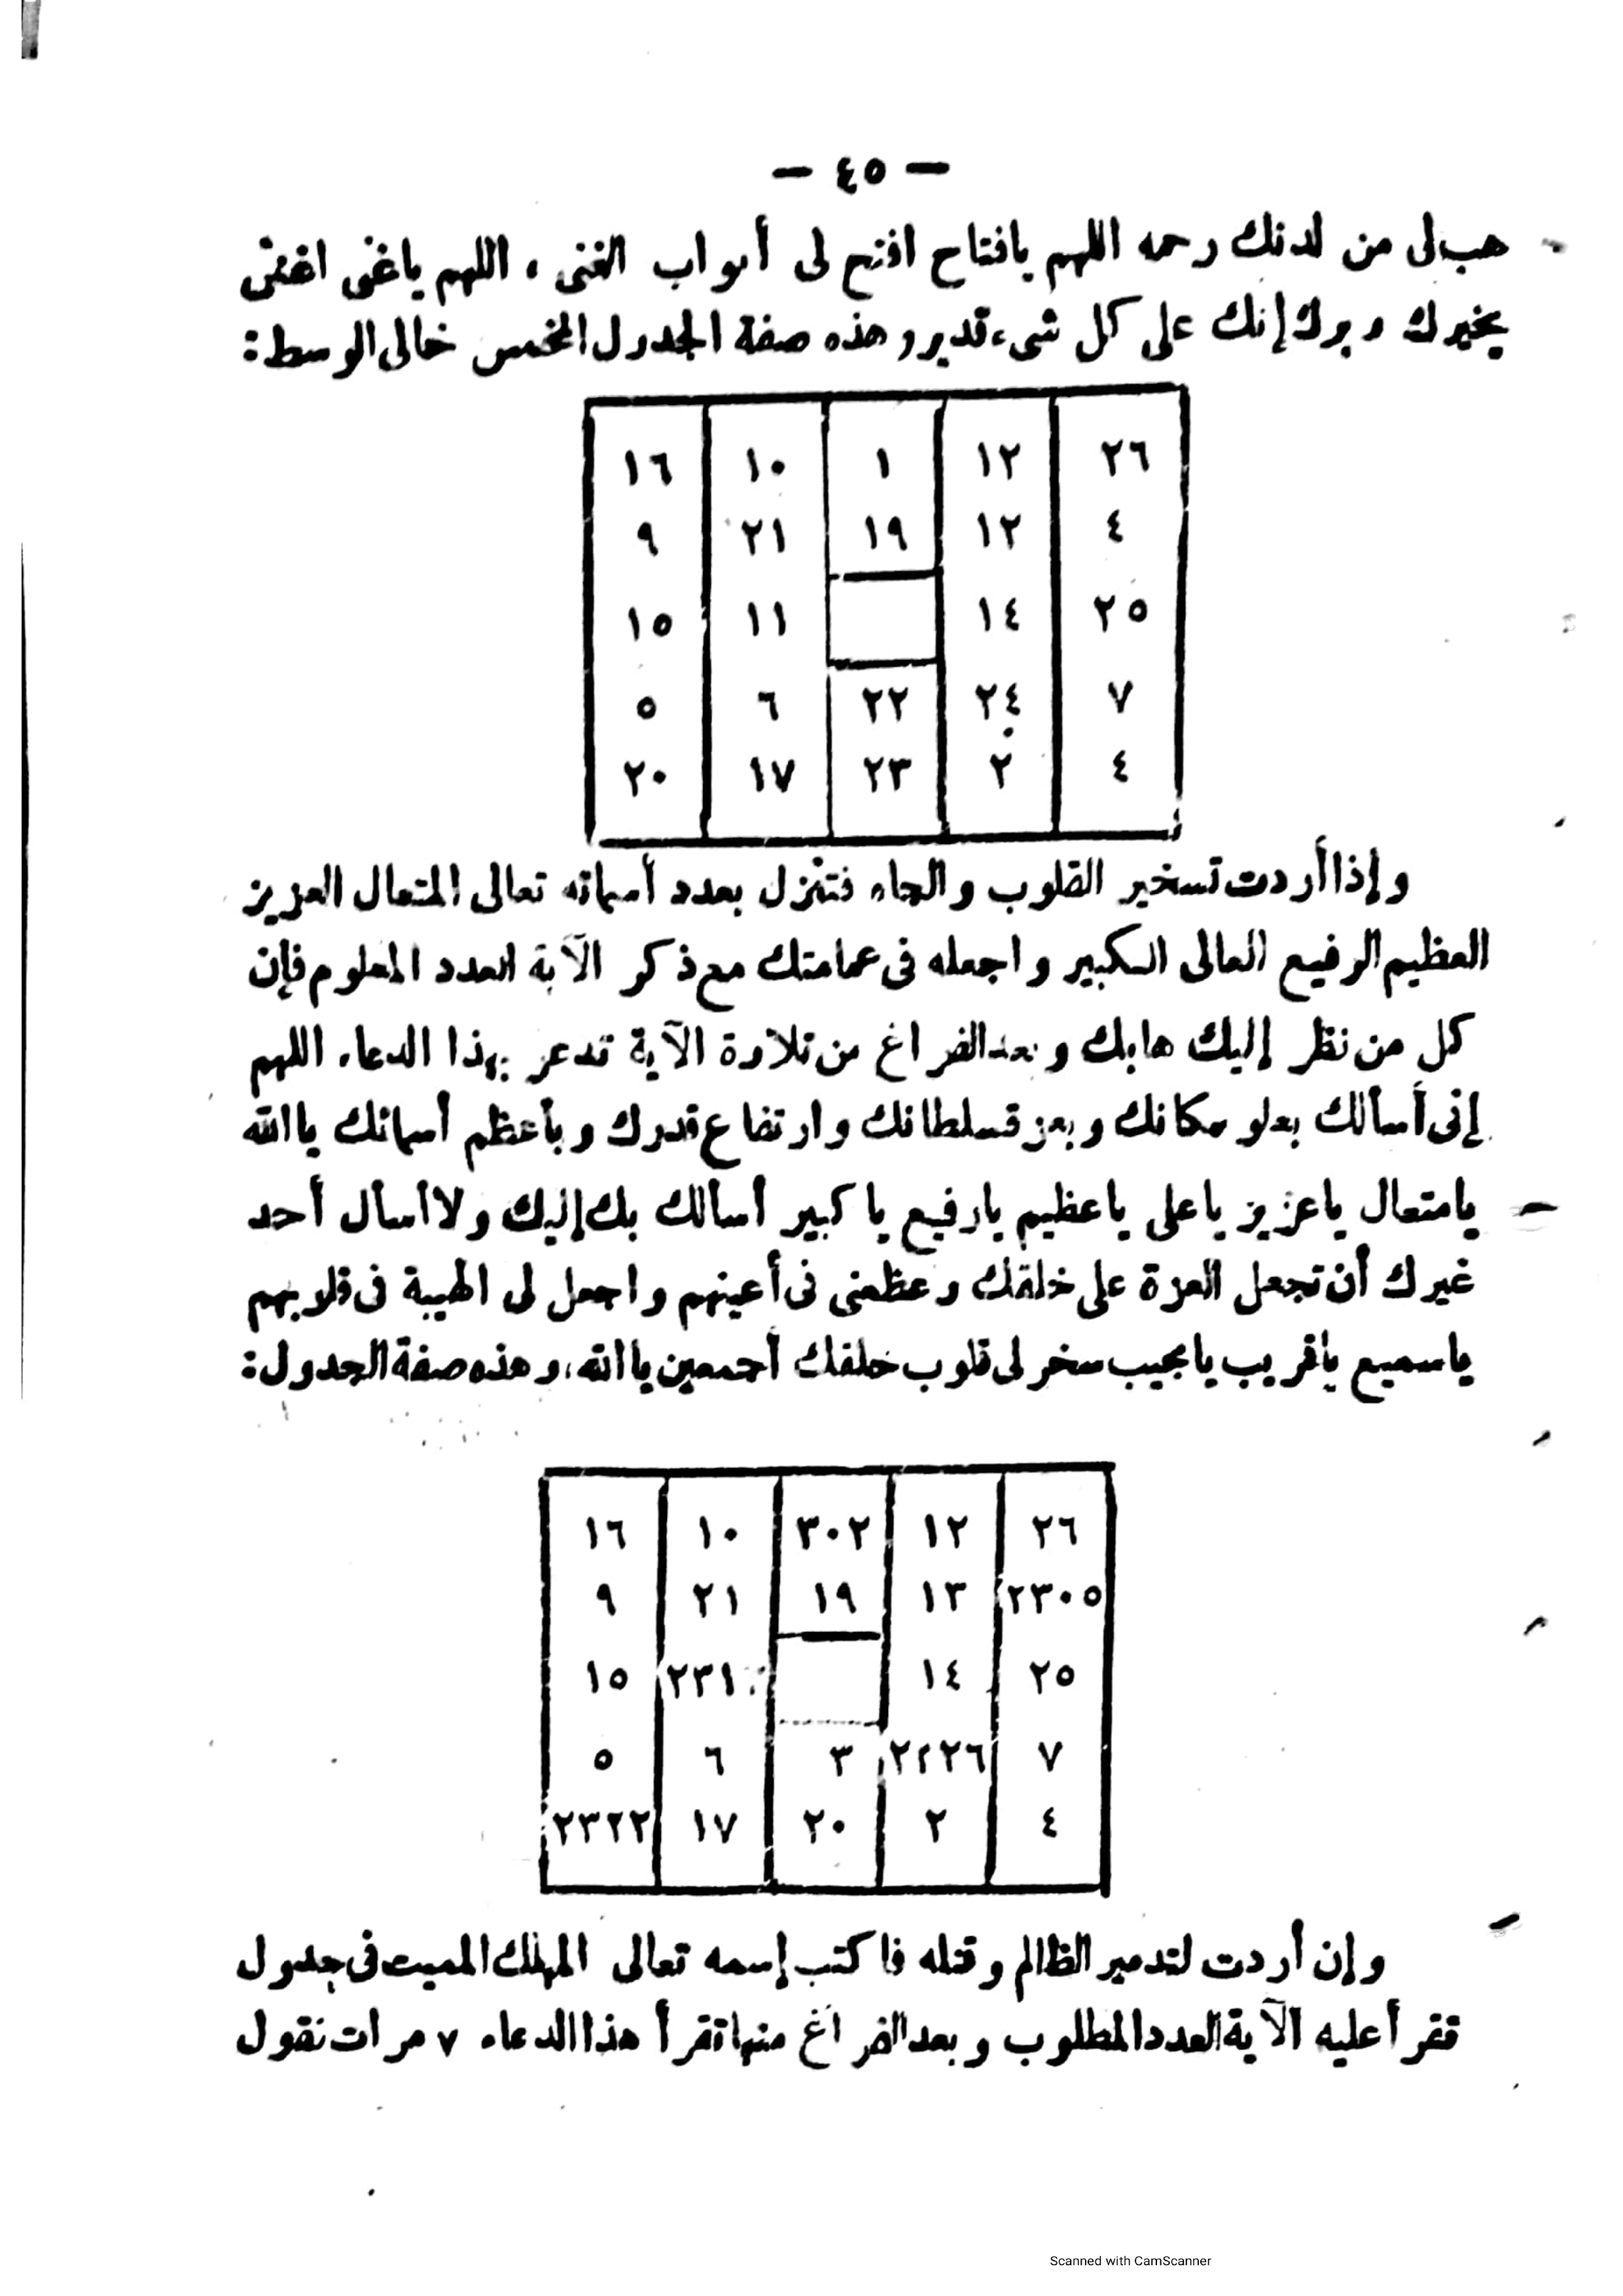 — ٤٥ —
هب لى من لدنك رحمه اللهم يافتاح افتح لى أبواب الغنى . اللهم ياغنى اغننى
بخيرك وبرك إنك على كل شىء قدير وهذه صفة الجدول المخمس خالى الوسط :
١٦ ١٠ ١ ١٢ ٢٦
٩ ٢١ ١٩ ١٢ ٤
١٥ ١١ ١٤ ٢٥
٥ ٦ ٢٢ ٢٤ ٧
٢٠ ١٧ ٢٣ ٢ ٤
وإذا أردت تسخير القلوب والجاه فتنزل بعدد أسمائه تعالى المتعال العزيز
العظيم الرفيع العالى الكبير واجعله فى عمامتك مع ذكر الآية العدد المعلوم فإن
كل من نظر إليك هابك وبعد الفراغ من تلاوة الآية تدعو بهذا الدعاء اللهم
إنى أسألك بعلو مكانك وبعز قسلطانك وارتفاع قدرك وبأعظم أسمائك ياالله
يامتعال ياعزيز ياعلى ياعظيم يارفيع ياكبير أسألك بك إليك ولا أسأل أحد
غيرك أن تجعل العزة على خلقك وعظمنى فى أعينهم واجعل لى الهيبة فى قلوبهم
ياسميع ياقريب يامجيب سخر لى قلوب خلقك أجمعين ياالله، وهذه صفة الجدول :
١٦ ١٠ ٣٠٢ ١٢ ٢٦
٩ ٢١ ١٩ ١٣ ٢٣٠٥
١٥ ٢٣١ ١٤ ٢٥
٥ ٦ ٣ ٢٢٢٦ ٧
٢٣٢٢ ١٧ ٢٠ ٢ ٤
وإن أردت لتدمير الظالم وقتله فاكتب إسمه تعالى المهلك المميت فى جدول
تقرأ عليه الآية العدد المطلوب وبعد الفراغ منها تقرأ هذا الدعاء ٧ مرات نقول
Scanned with CamScanner